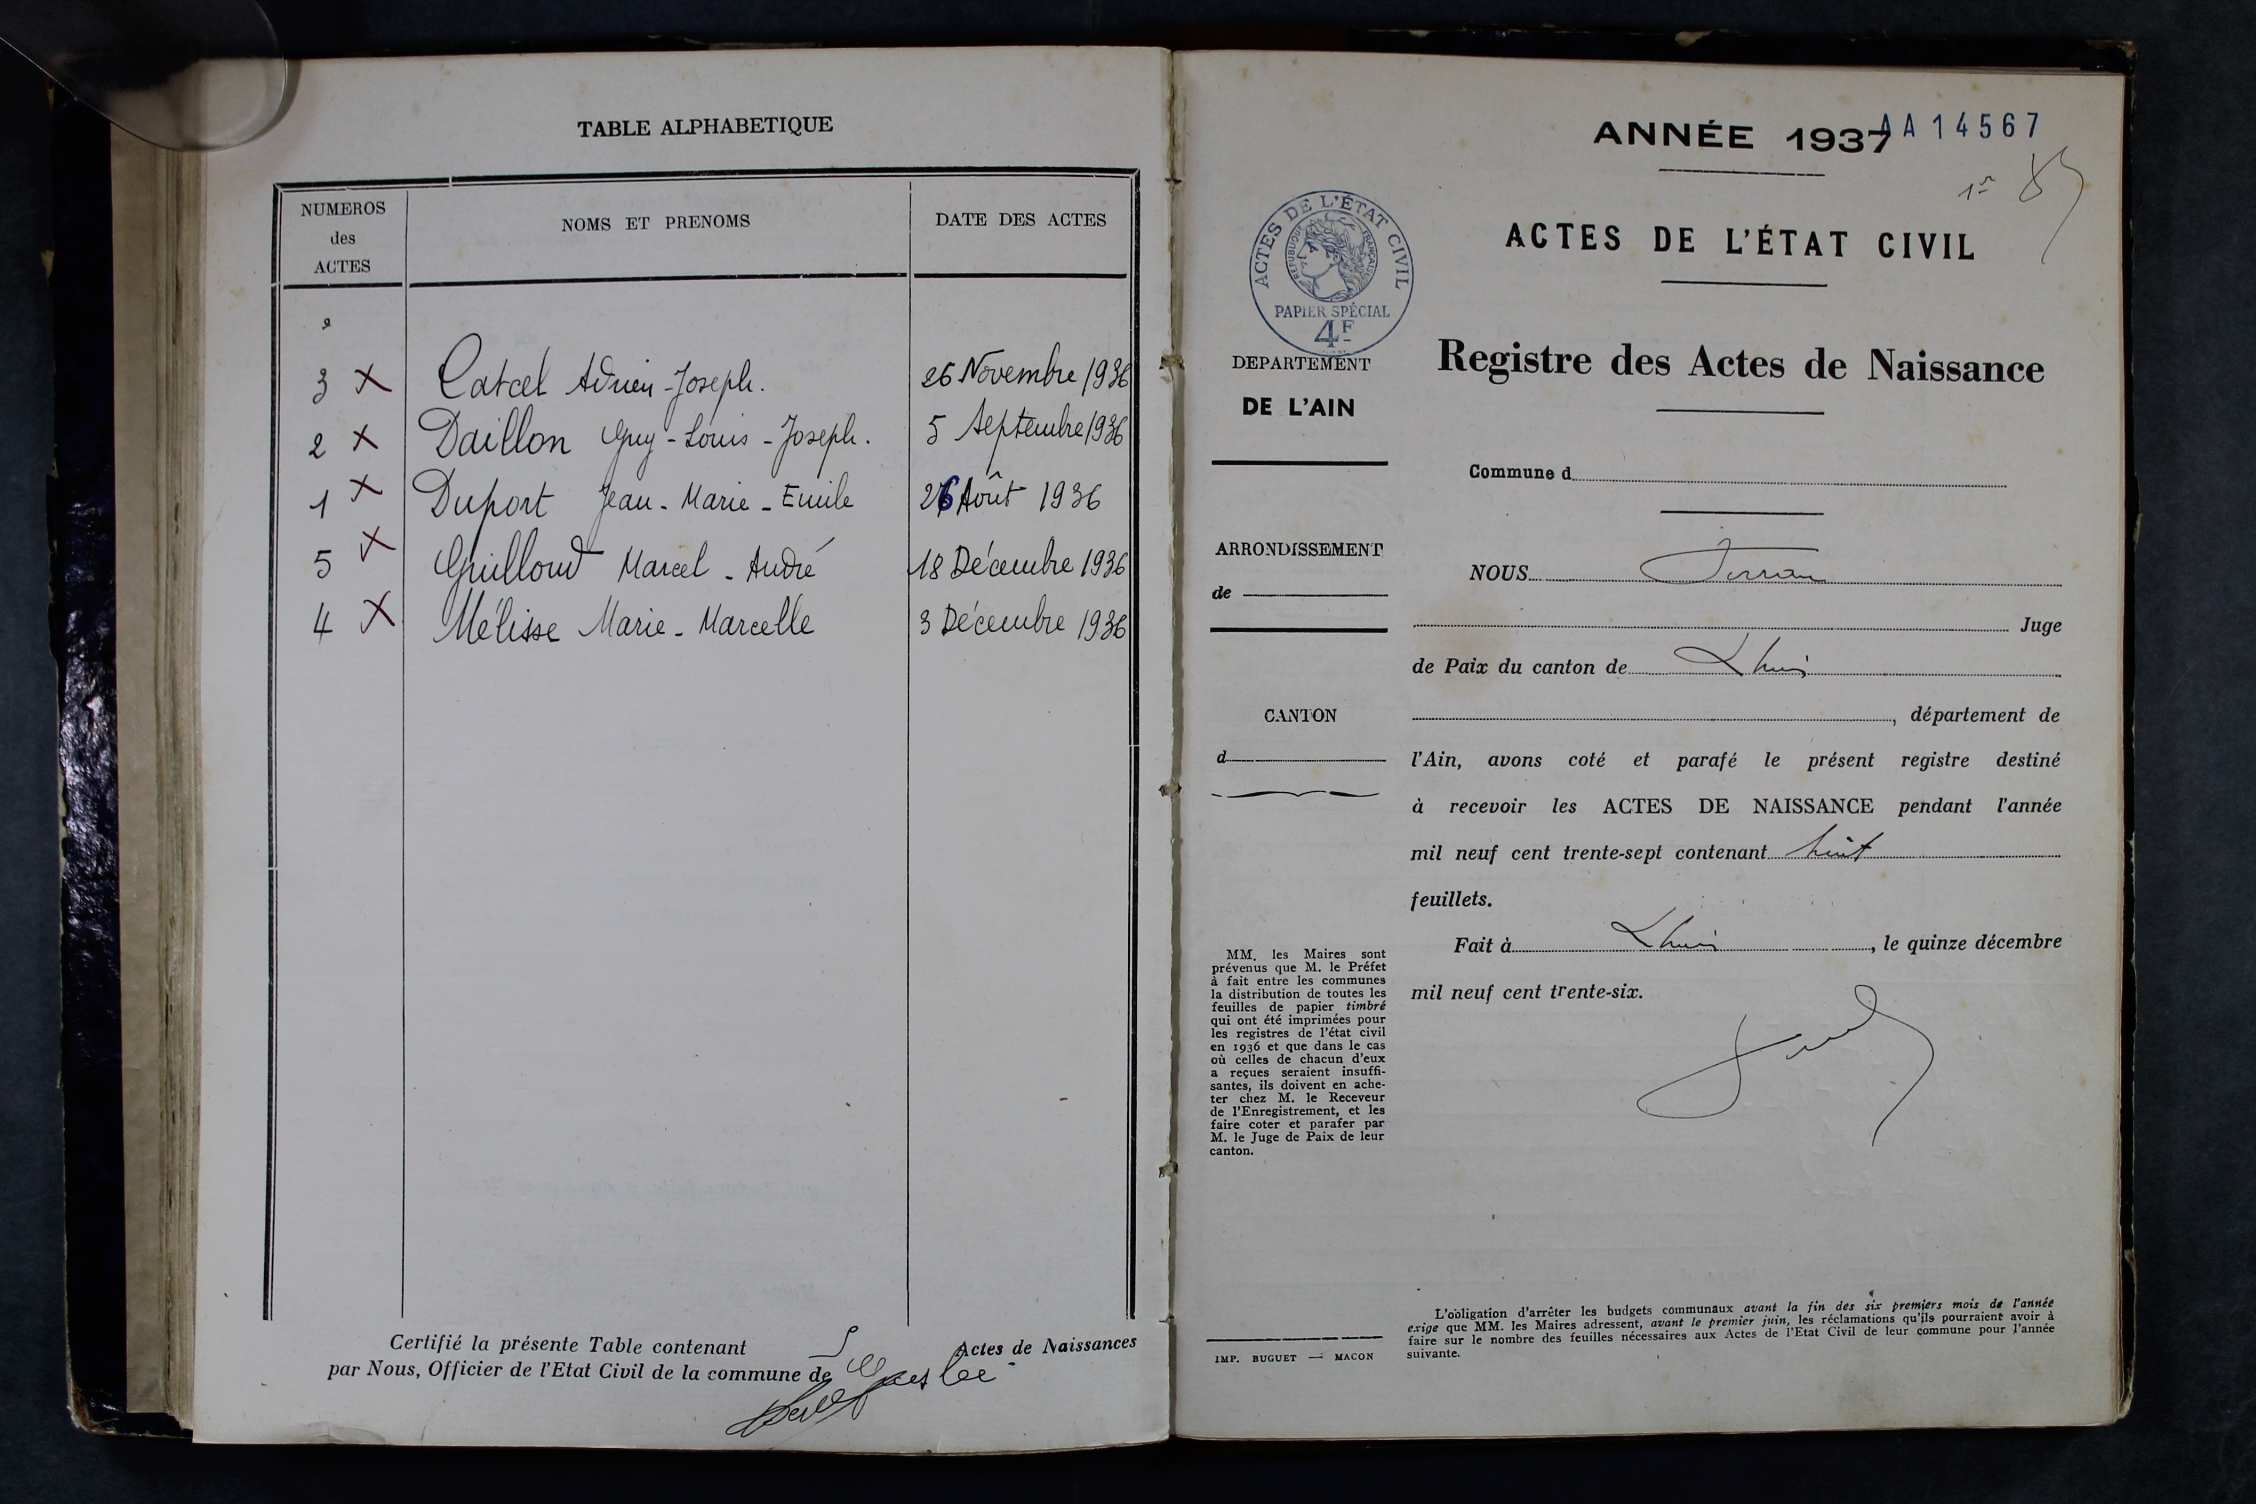 TABLE ALPHABETIQUE
NUMEROS
des
ACTES
NOMS ET PRENOMS
DATE DES ACTES
3 X Catcel Adrien-Joseph. 26 Novembre 1936
2 X Daillon Guy-Louis-Joseph. 5 Septembre 1936
1 X Duport Jean-Marie-Emile 26 Août 1936
5 X Guilloud Marcel-André 18 Décembre 1936
4 X Mélisse Marie-Marcelle 3 Décembre 1936
Certifié la présente Table contenant 5 Actes de Naissances
par Nous, Officier de l'Etat Civil de la commune de
ANNÉE 1937
AA14567
1er
ACTES DE L'ÉTAT CIVIL
ACTES DE L'ÉTAT CIVIL
REPUBLIQUE FRANÇAISE
PAPIER SPÉCIAL
4F
Registre des Actes de Naissance
DEPARTEMENT
DE L'AIN
Commune d
ARRONDISSEMENT
de
NOUS
Juge
de Paix du canton de Lhuis
CANTON
d
, département de
l'Ain, avons coté et parafé le présent registre destiné
à recevoir les ACTES DE NAISSANCE pendant l'année
mil neuf cent trente-sept contenant huit
feuillets.
Fait à Lhuis, le quinze décembre
mil neuf cent trente-six.
MM. les Maires sont
prévenus que M. le Préfet
à fait entre les communes
la distribution de toutes les
feuilles de papier timbré
qui ont été imprimées pour
les registres de l'état civil
en 1936 et que dans le cas
où celles de chacun d'eux
a reçues seraient insuffi-
santes, ils doivent en ache-
ter chez M. le Receveur
de l'Enregistrement, et les
faire coter et parafer par
M. le Juge de Paix de leur
canton.
IMP. BUGUET — MACON
L'obligation d'arrêter les budgets communaux avant la fin des six premiers mois de l'année
exige que MM. les Maires adressent, avant le premier juin, les réclamations qu'ils pourraient avoir à
faire sur le nombre des feuilles nécessaires aux Actes de l'Etat Civil de leur commune pour l'année
suivante.